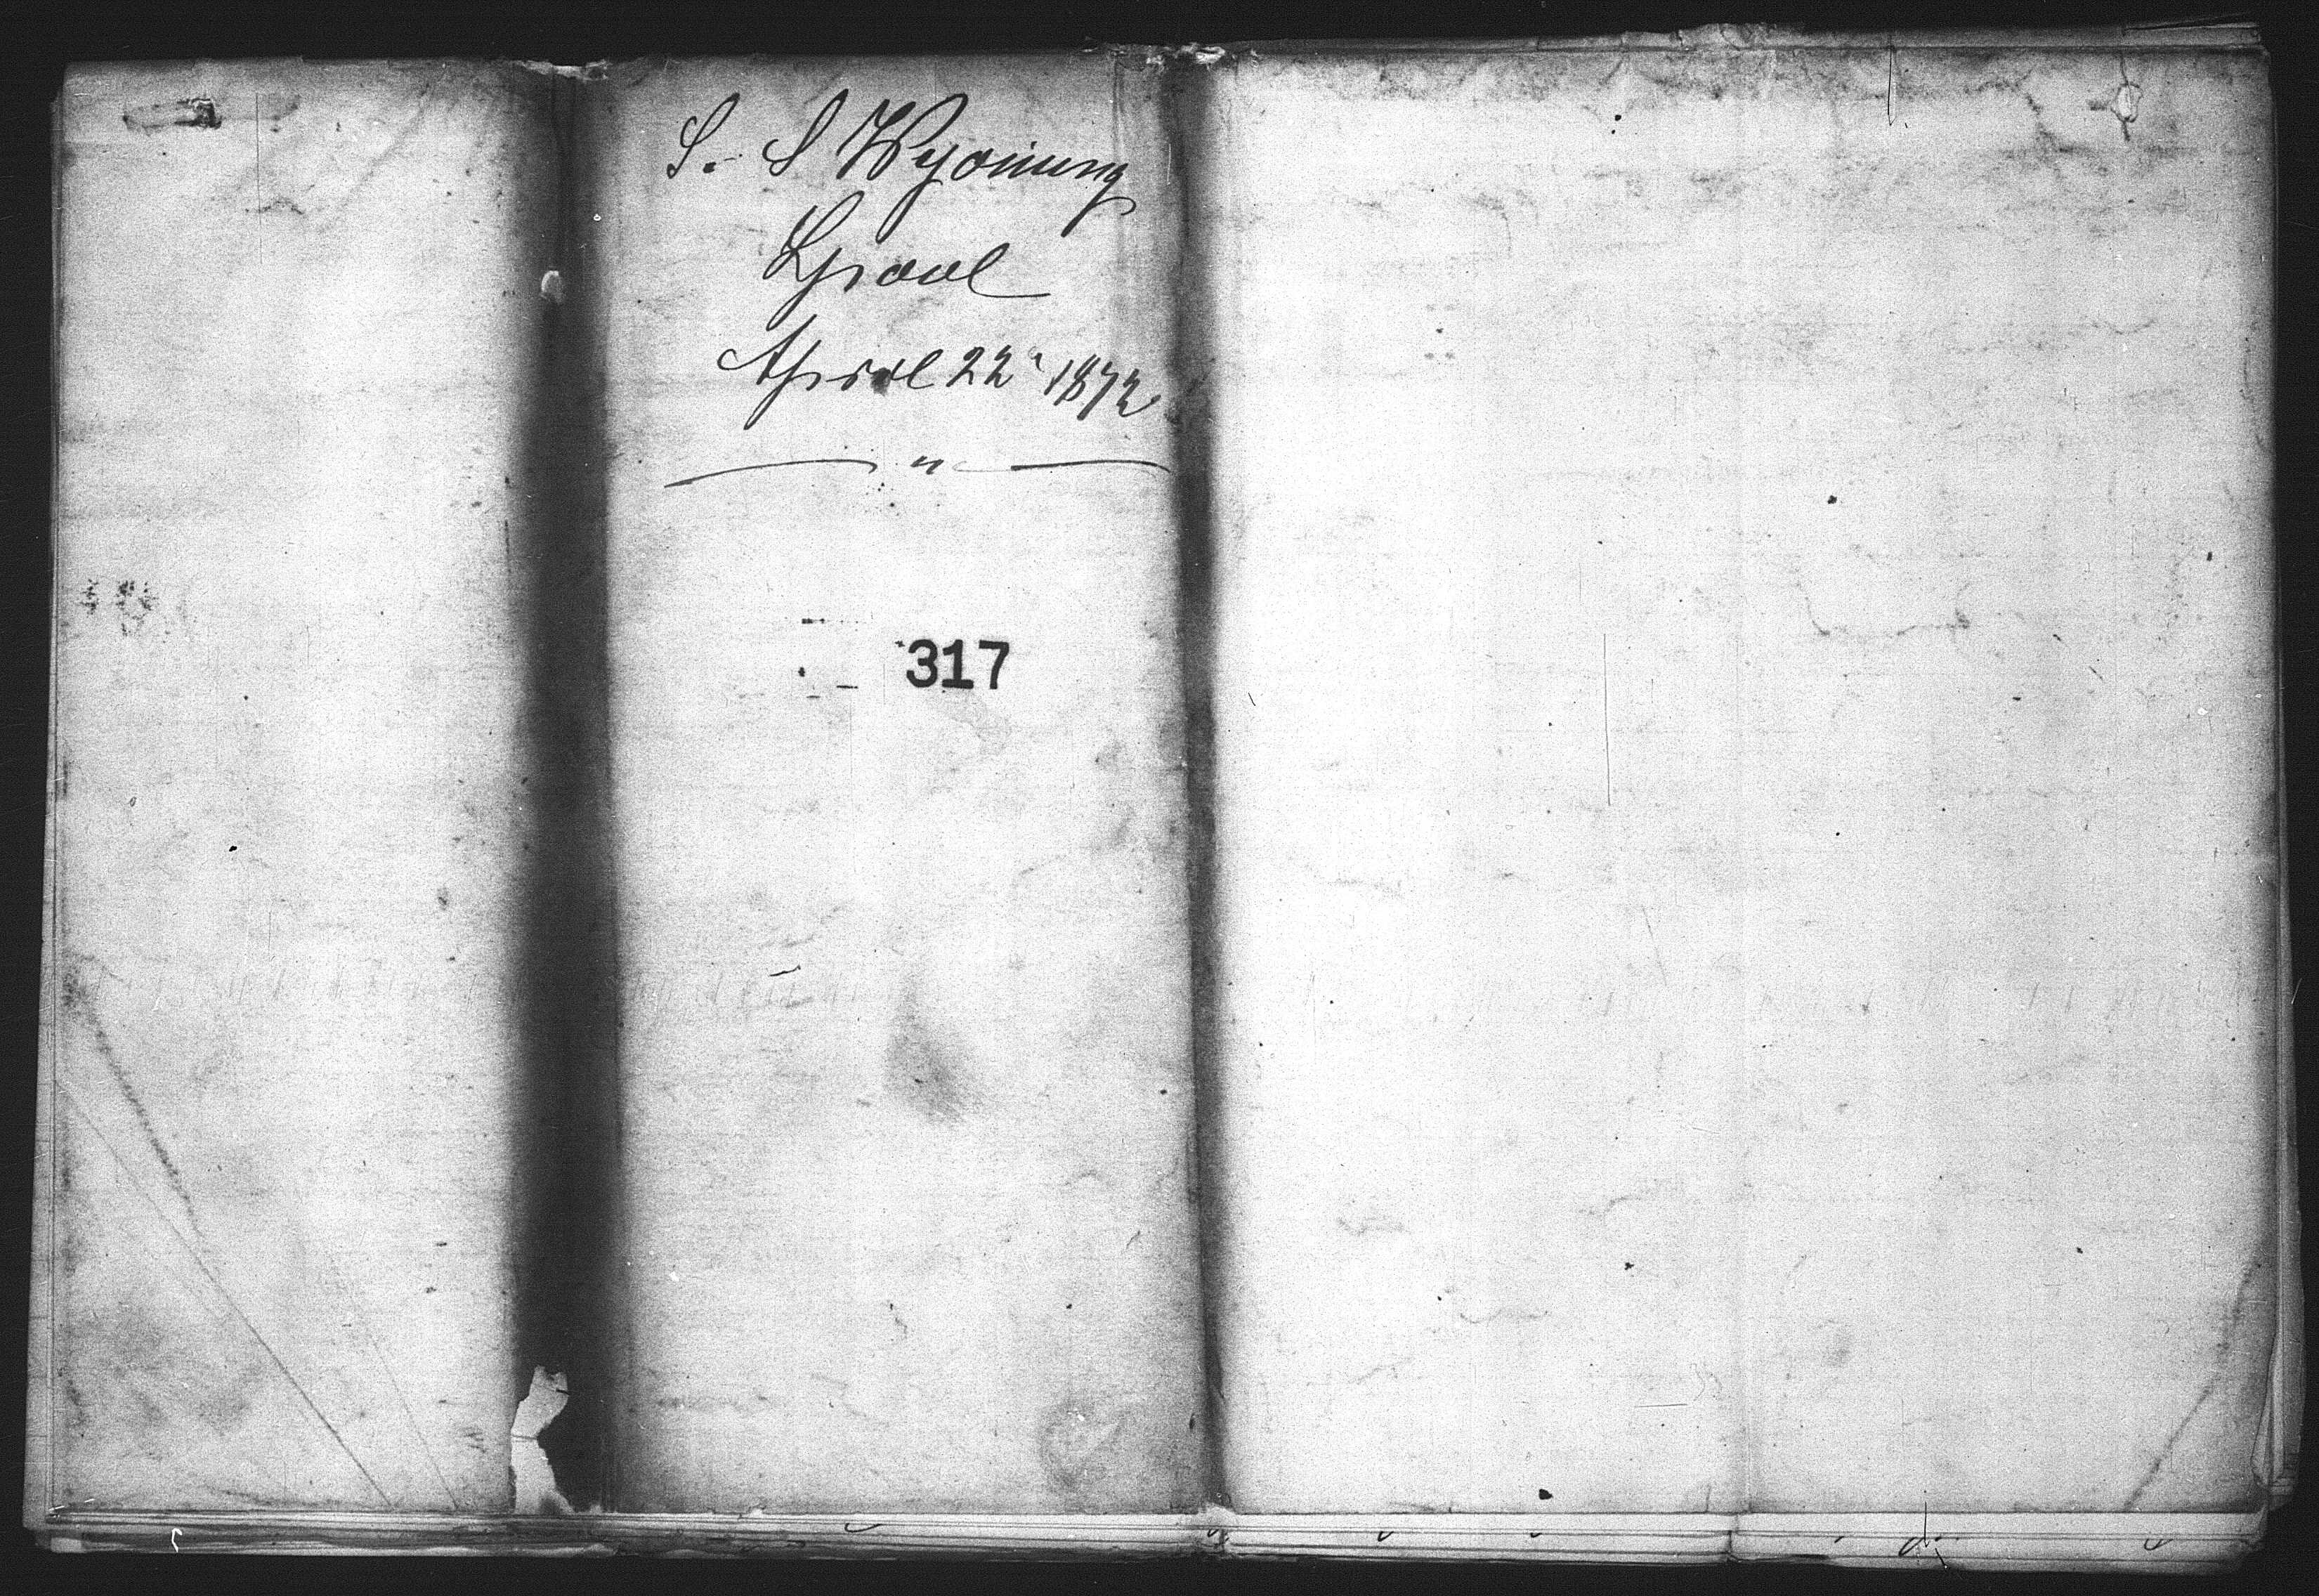 S. S Wyoming
Lpool
April 22" 1872
317